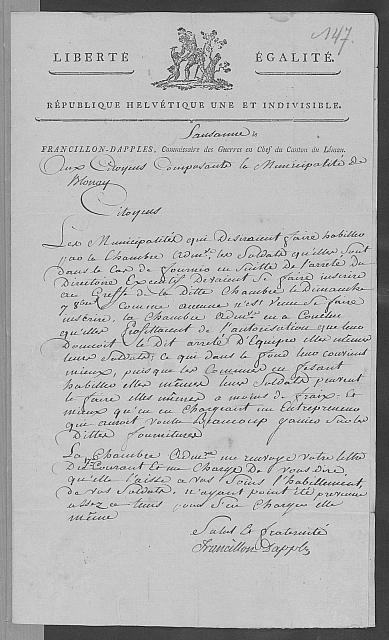 147.
LIBERTÉ ÉGALITÉ.
RÉPUBLIQUE HELVÉTIQUE UNE ET INDIVISIBLE.
Lausanne le
FRANCILLON-DAPPLES, Commissaire des Guerres en Chef du Canton du Léman.
Aux Citoyens Composants la Municipalité de
Blonay
Citoyens
Les Municipalités qui Desiraient faire habiller
par la Chambre Admve. les Soldats qu'elles sont
dans le Cas de fournir en Suitte de l'arreté du
Directoire Executif devaient Se faire inscrire
au Greffe de la Ditte Chambre le Dimanche
7 Comme aucune n'est Venue Se faire
inscrire, la Chambre Admve. en a Conclu
qu'elles profittaient de l'autorisation que leur
Donnoit le Dit arreté d'Equiper elle mêmes
leur Soldats, ce qui dans le fond leur convient
mieux, puisque les Communes en fesant
habiller elles mêmes leur Soldats peuvent
le faire elles mêmes a moins de fraix. Et
mieux qu'en en Chargeant un Entrepreneur
que auroit voulu beaucoup gagner Sur les
Dittes fournitures
La Chambre Admve. me renvoye votre lettre
Du Courant Et me Charge De vous dire,
qu'elle laisse a vos Soins l'habillement
de vos Soldats, n'ayant point été prevenue
assez a tems pour S'en Charger elle
même
Salut & fraternité
Francillon Dapples